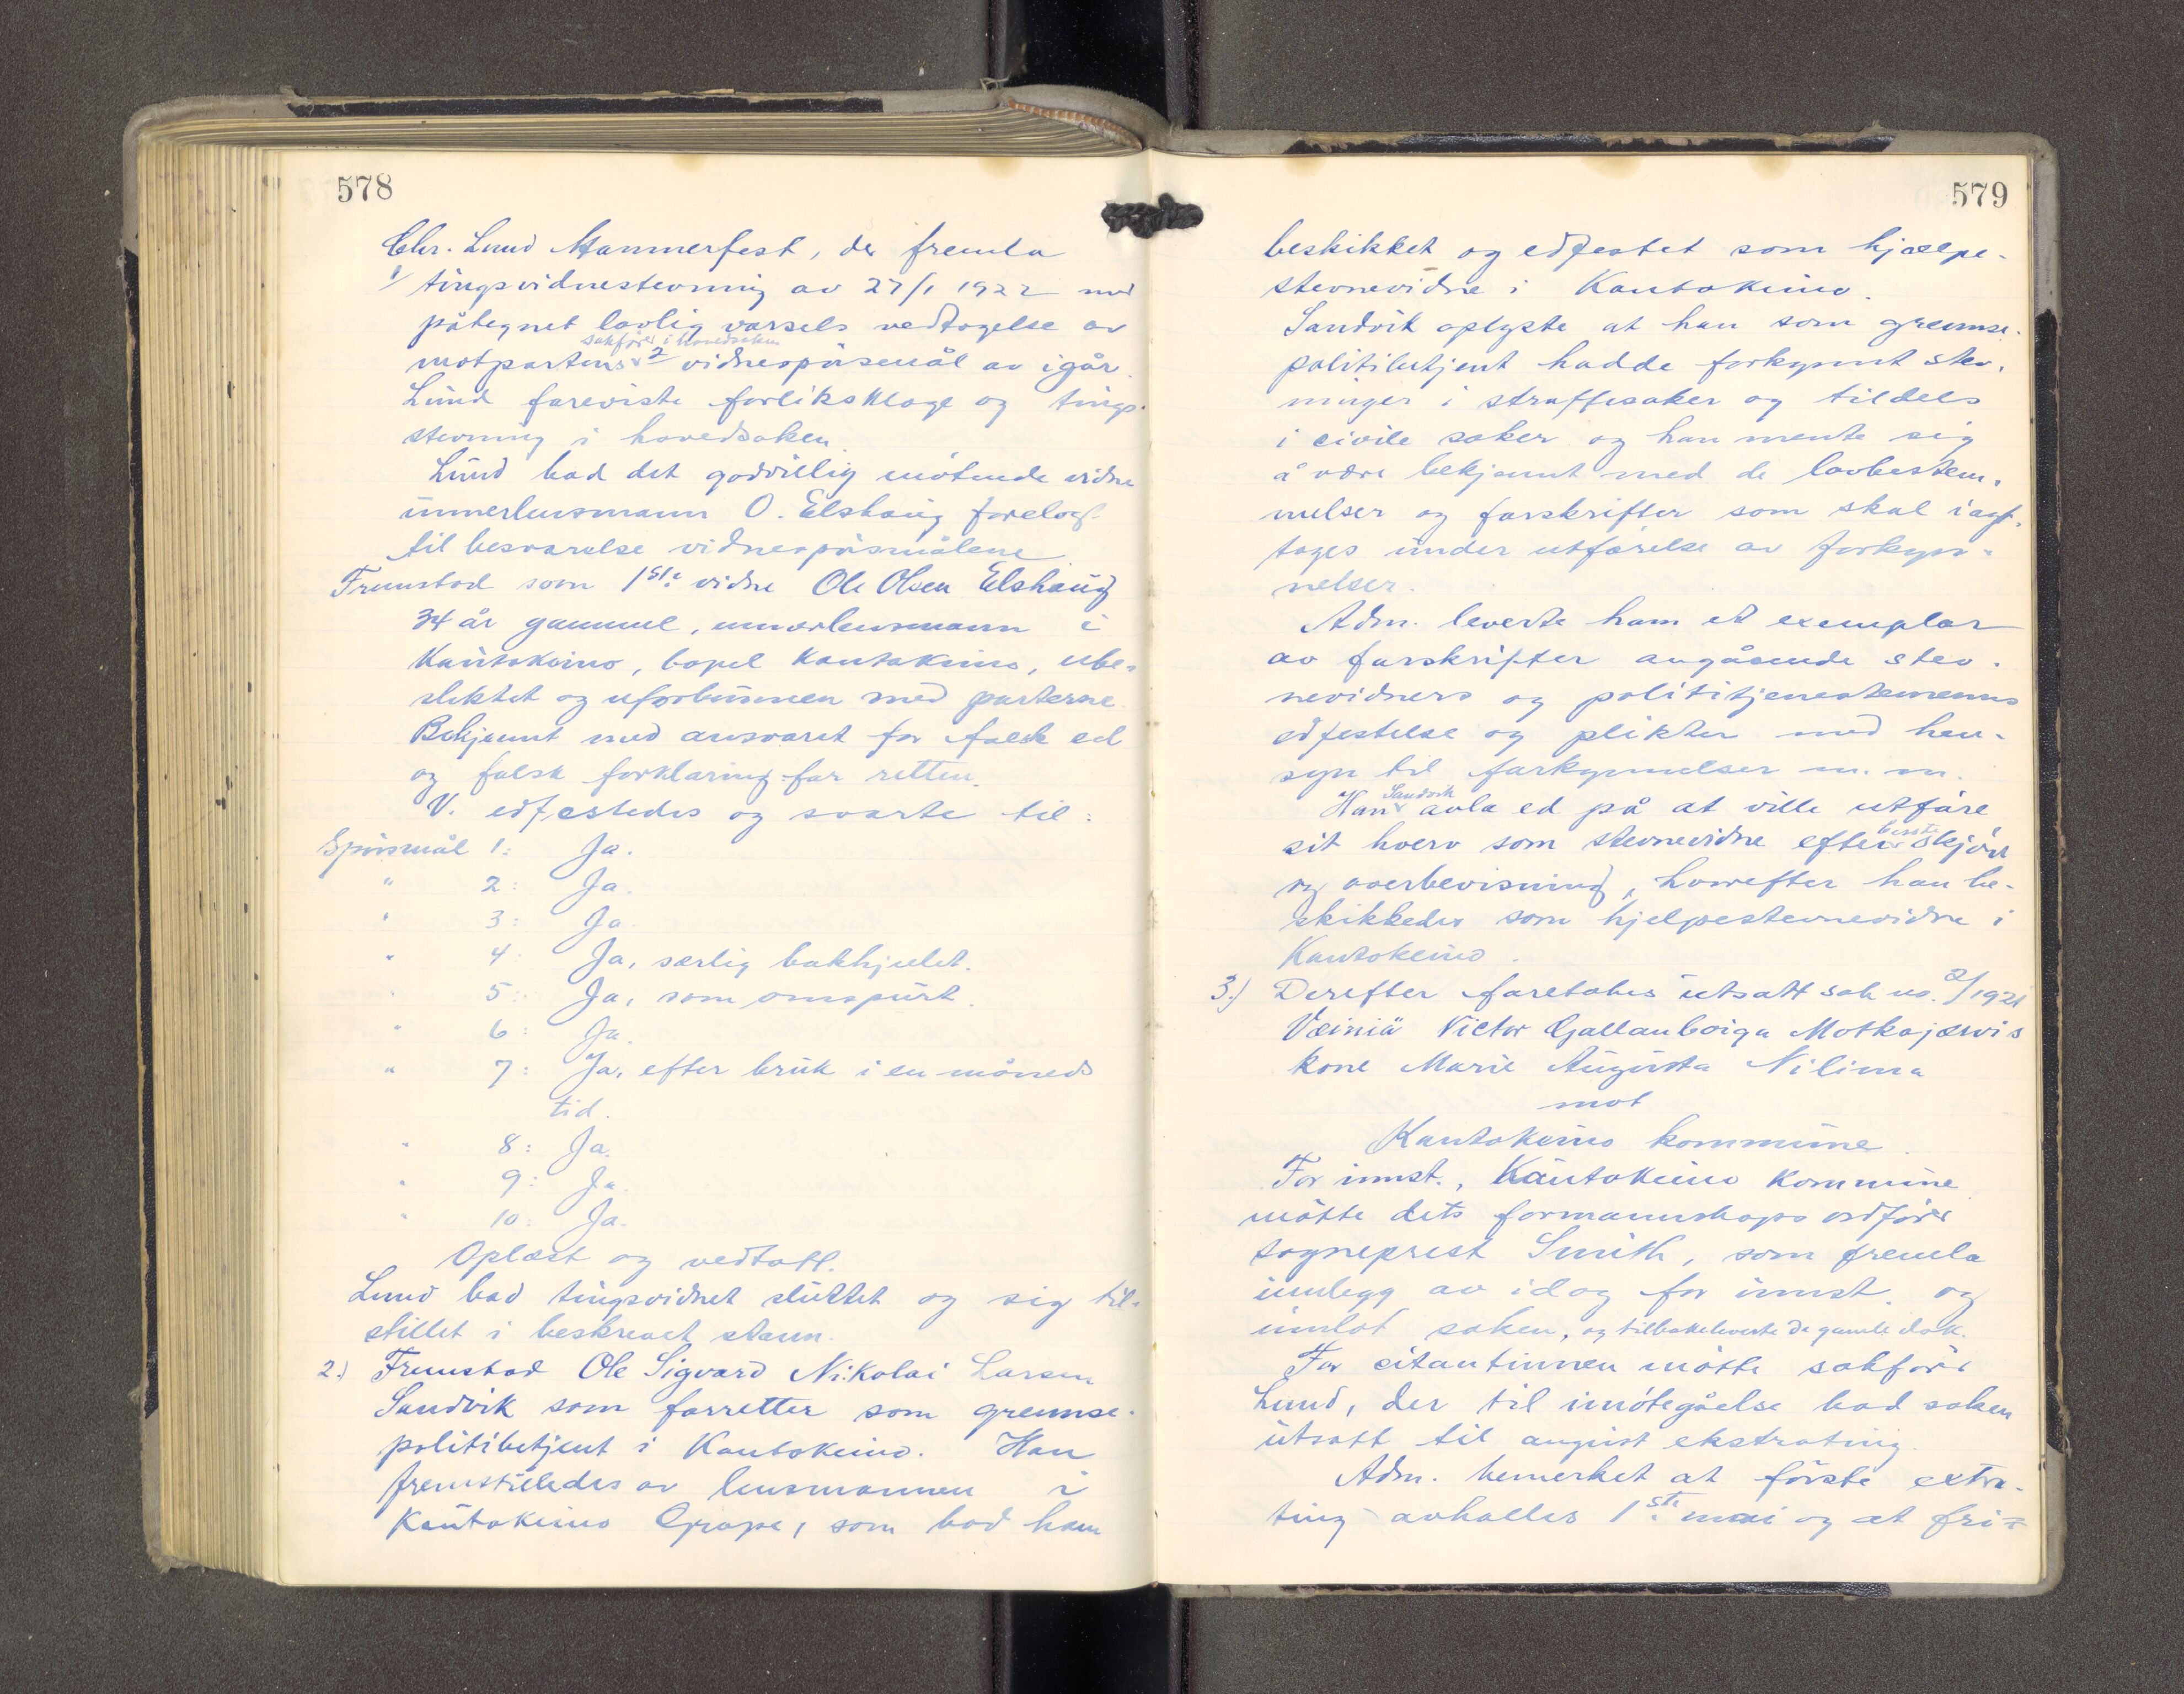 578
Chr. Lund Hammerfest, der fremla
1/ tingsvidnestevning av 27/1 1922 med
påtegnet lovlig varsels vedtagelse av
sakförer i hovedsaken
motpartens 2 vidnespörsmål av igår.
Lund foreviste forliksklage og tings-
stevning i hovedsaken.
Lund bad det godvillig mötende vidne
underlensmann O. Elshaug forelagt
til besvarelse vidnespörsmålene
Fremstod som 1ste vidne Ole Olsen Elshaug
34 år gammel, underlensmann i
Kautokeino, bopel Kautokeino, ube-
slektet og uforbunnen med parterne.
Bekjennt med ansvaret for falsk ed
og falsk forklaring for retten.
V. edfestedes og svarte til:
Spörsmål 1: Ja.
" 2: Ja.
" 3: Ja.
" 4: Ja, særlig bakhjulet.
" 5: Ja, som omspurt.
" 6: Ja.
" 7: Ja, efter bruk i en måneds
tid.
" 8: Ja.
" 9: Ja.
" 10: Ja.
Oplæst og vedtatt.
Lund bad tingsvidnet sluttet og sig til-
stillet i beskrevet stann.
2.) Fremstod Ole Sigvard Nikolai Larsen
Sandvik som forretter som grennse-
politibetjent i Kautokeino. Han
fremstilledes av lensmannen i
Kautokeino Grape, som bad ham
579
beskikket og edfestet som hjælpe-
stevnevidne i Kautokeino.
Sandvik oplyste at han som grennse-
politibetjent hadde forkynnt stev-
ninger i straffesaker og tildels
i civile saker og han mente sig
å være bekjennt med de lovbestem-
melser og forskrifter som skal iagt-
tages under utförelse av forkynn-
nelser.
Adm. leverte ham et exemplar
av forskrifter angående stev-
nevidners og polititjenestemenns
edfestelse og plikter med hen-
syn til forkynnelser m.m.
Sandvik
Han avla ed på at ville utföre
beste
sit hverv som stevnevidne efter skjönn
og overbevisning, hvorefter han be-
skikkedes som hjelpestevnevidne i
Kautokeino.
3.) Derefter foretokes utsatt sak no. 2/1921
Veiniä Victor Gallanboiga Motkajærvis
kone Marie Augusta Nilima
mot
Kautokeino kommune.
For innst., Kautokeino kommune
mötte dets formannskaps ordförer
sogneprest Smith, som fremla
innlegg av idag for innst. og
innlot saken, og tilbakeleverte de gamle dok.
For citantinnen mötte sakförer
Lund, der til imötegåelse bad saken
utsatt til august ekstrating.
Adm. bemerket at förste extra-
ting avholles 1ste mai og at fri-